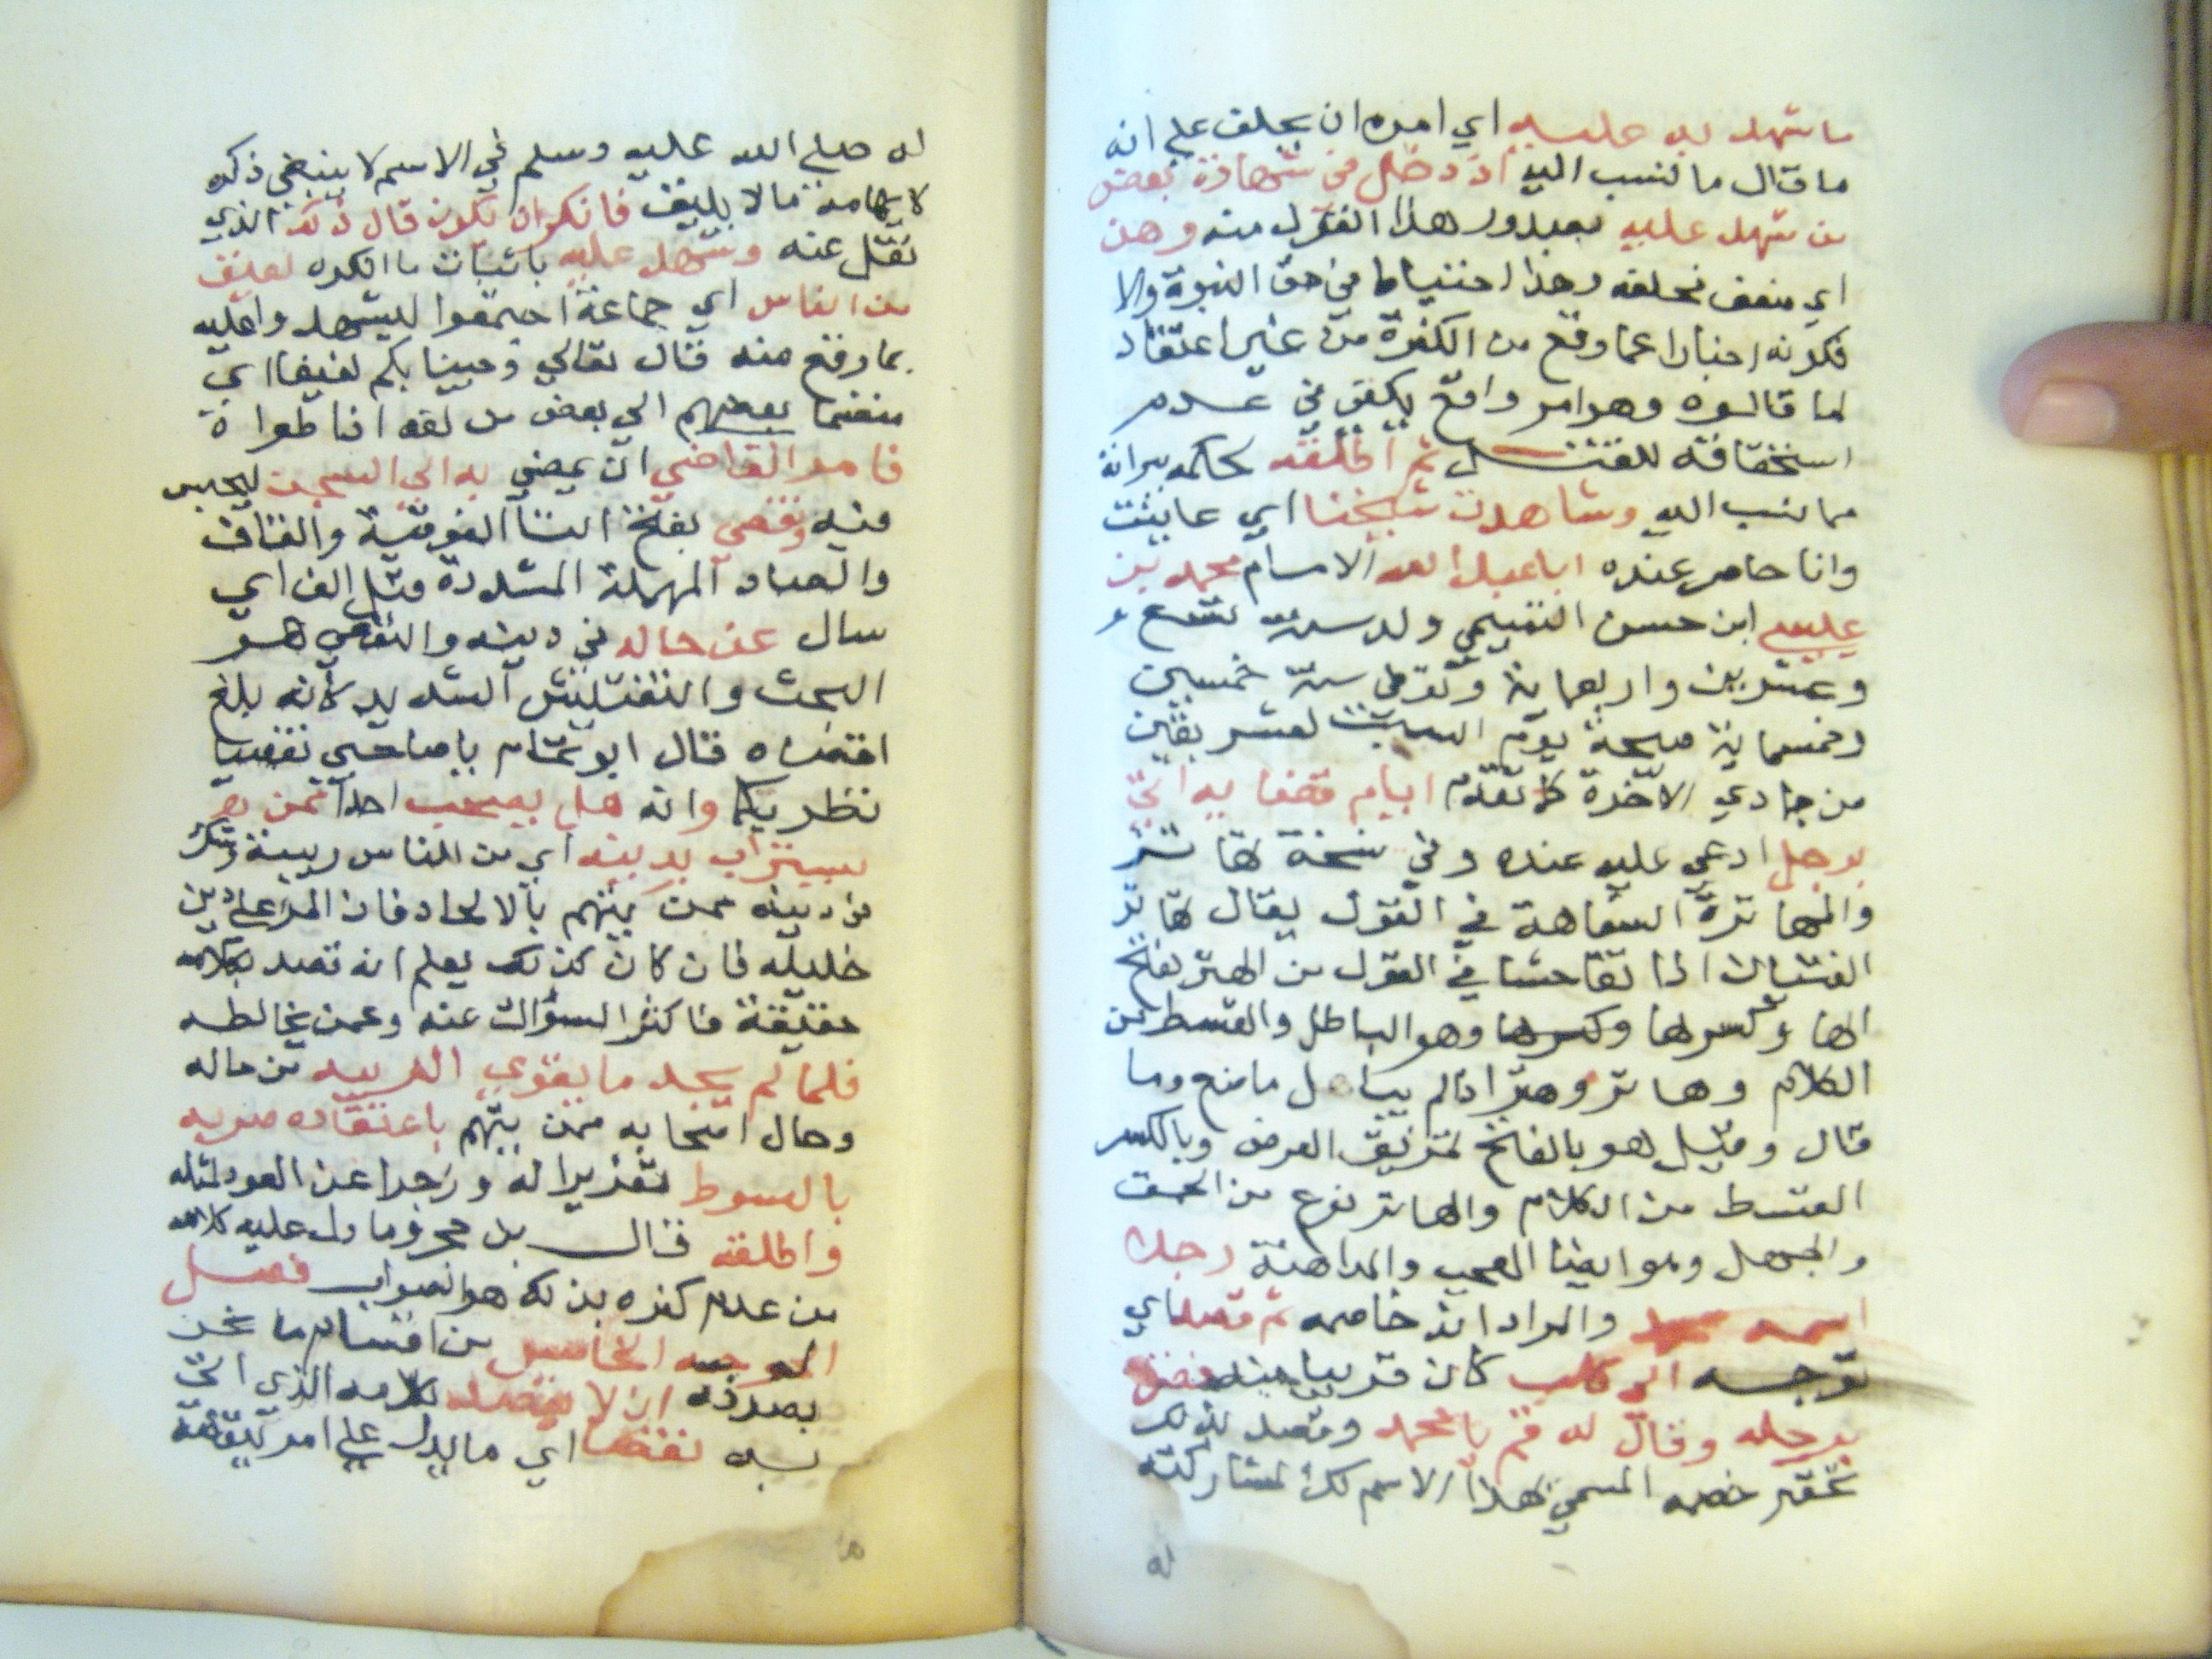 ما شهد به عليه اي امره ان يحلف علي انه
ما قال ما نسب اليه اذ دخل في شهادة بعض
من شهد عليه بصدور هذا القول منه وهن
اي ضعف فحلفه وهذا احتياطا في حق النبوة والا
فكونه اخبارا عما وقع من الكفرة من غير اعتقاد
لما قالوه وهو امر واقع يكفي في عدم
استحقاقه للقتل ثم اطلقه لحكمه ببرانة
مما نسب اليه وشاهدت شيخنا اي عاينت
وانا حاضر عنده ابا عبد الله الامام محمد بن
عيسي ابن حسن التميمي ولد سنة تسع و
وعشرين واربعماية وتوفي سنة خمسين
وخمسماية صبحة يوم السبت لعشر بقين
من جمادي الاخرة كما تقدم ايام قضا يه اتي
برجل ادعي عليه عنده وفي نسخة هاتر
والمهاترة السفاهة في القول يقال هاتر
الفتيان اذا تفاحشا في القول من الهتر بفتح
الها وكسرها وهو الباطل والسقط من
الكلام وهاتر وهترا ذا لم يبا مل ما صنع وما
قال وقيل هو بالفتح تمزيق العرض وبالكسر
السقط من الكلام والهاتر نوع من الحمق
والجهل وهو ايضا العجب والداهية رجلا
اسمه محمد والمراد انه خاصمه ثم قصد اي
توجه الي كلب كان قريبا منه فضربه
برجله وقال له قم يا محمد وقصد بذلك
تحقير خصمه المسمي بهذا الاسم لكن لمشاركته
له
له صلي الله عليه وسلم في الاسم لا ينبغي ذكره
لايهامه ما لا يليق فانكر ان يكون قال ذلك الذي
نقل عنه وشهد عليه باثبات ما انكره لفيف
من الناس اي جماعة اجتمعوا ليشهدوا عليه
بما وقع منه قال تعالي وجينا بكم لفيفا اي
منضما بعضهم الي بعض من لفه اذا طواه
فامر القاضي ان يمضي به الي السجن ليحبس
فيه وتقصي بفتح التا الفوقية والقاف
والصاد المهملة المشددة وقبل الف اي
سال عن حاله في دينه والتقصي هو
البحث والتفتيش الشديد لانه بلغ
اقصاه قال ابو تمام يا صاحبي تقصيا
نظريكما وانه هل يصحب احدا ممن
يستراب بدينه اي من الناس ريبة وشك
في دينه ممن يتهم بالالحاد فان المرء علي دين
خليله فان كان كذلك يعلم انه قصد بكلامه
حقيقة فاكثر السؤال عنه وعمن يخالطه
فلما لم يجد ما يقوي الريبه من حاله
وحال اصحابه ممن يتهم باعتقاده ضربه
بالسوط تعزيرا له وزجرا عن العود لمثله
واطلقه قال بن حجر وما دل عليه كلامه
من عدم كفره بذلك هو الصواب فصل
الوجه الخامس من اقسام ما نحن
بصدده ان لا يقصد بكلامه الذي اتي
به نقصا اي ما يدل علي امر